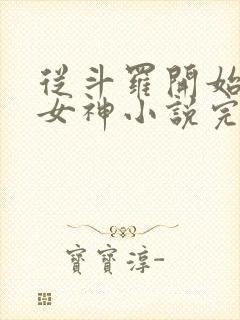 從斗羅開始
女神小說完
寶寶淳-